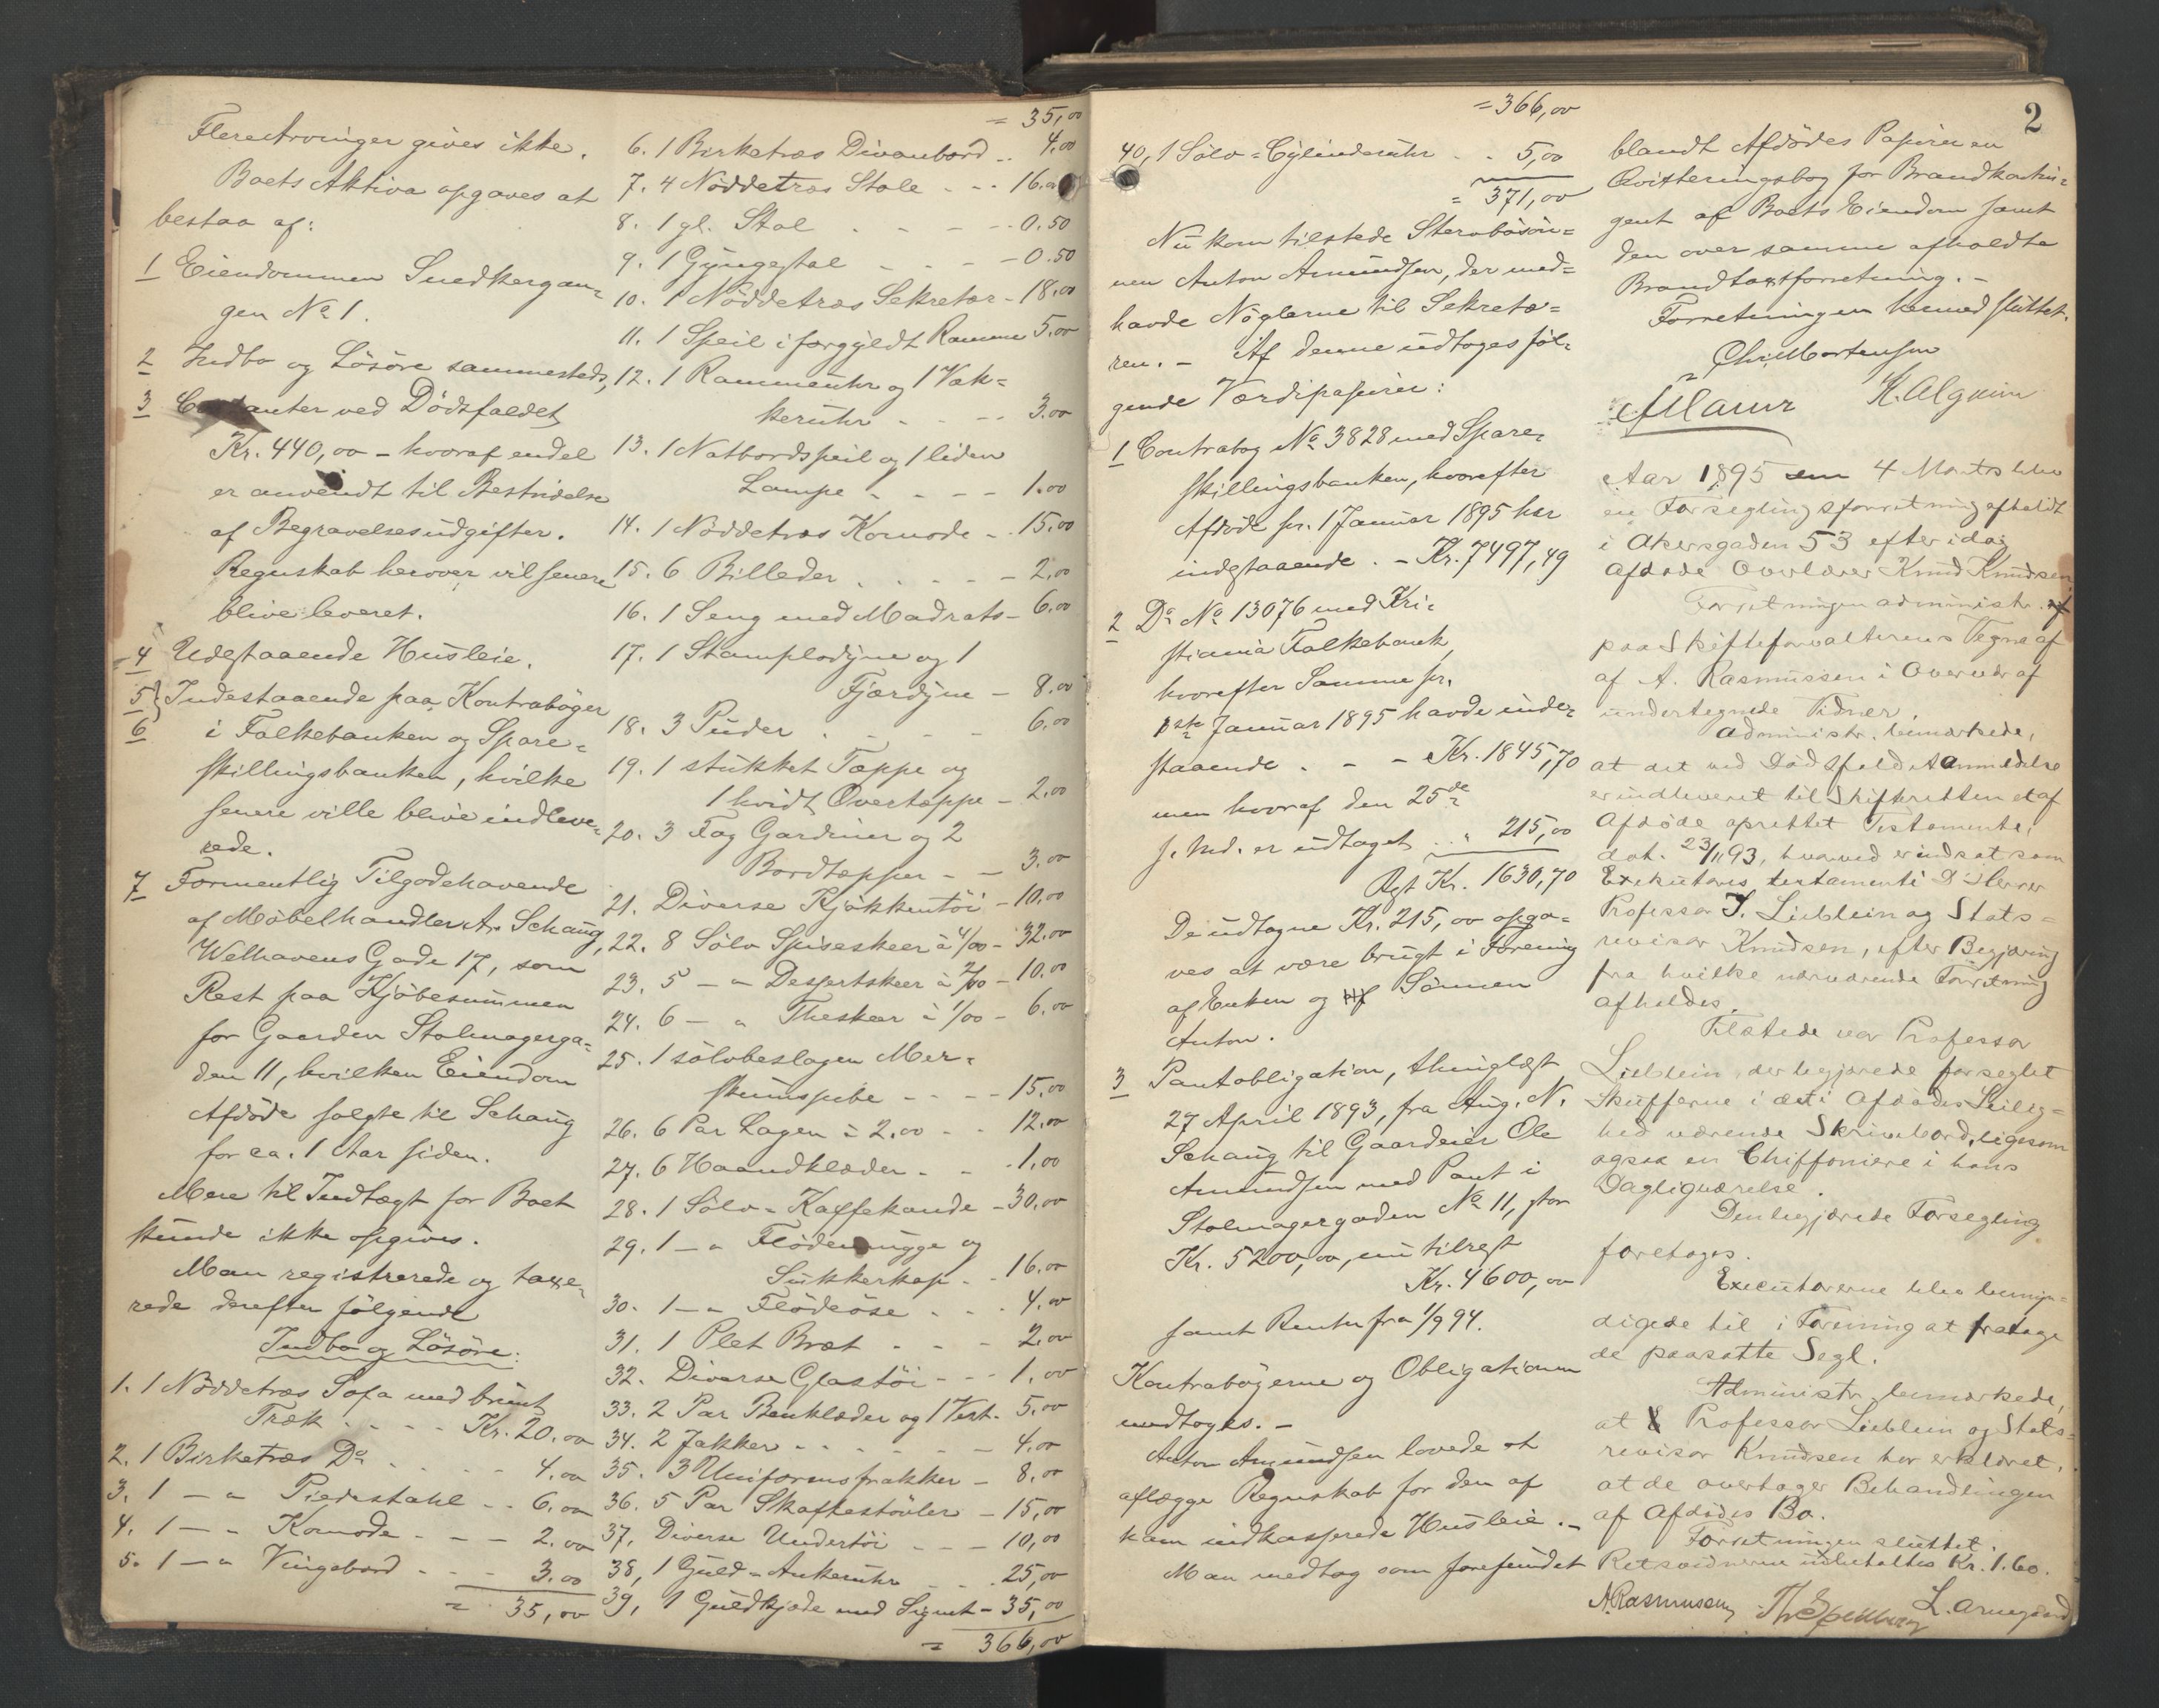 Flere Arvinger gives ikke.
Boets Aktiva opgaves at
bestaa af:
1 Eiendommen Snedkergan-
gen No 1.
2 Indbo og Lösöre sammesteds,
3 Contanter ved Dödsfaldet
Kr. 440,00 - hvoraf endel
er anvendt til Bestridelse
af Begravelsesudgifter.
Regnskab herover vil senere
blive leveret.
4 Udestaaende Husleie.
5} Indestaaende paa Kontraböger
6 i Folkebanken og Spare-
skillingsbanken, hvilke
senere ville blive indleve-
rede.
7 Formentlig Tilgodehavende
af Möbelhandler A. Schaug,
Welhavens Gade 17, som
Rest paa Kjöbesummen
for Gaarden Stolmagerga-
den 11, hvilken Eiendom
Afdöde solgte til Schaug
for ca. 1 Aar siden.
Mere til Indtægt for Boet
kunde ikke opgives.
Man registrerede og taxe-
rede derefter fölgende
Indbo og Lösöre:
1. 1 Nöddetræs Sofa med brunt
Træk - - - - Kr. 20.00
2. 1 Birketræs Do - - - - 4.00
3. 1 — " Piedestahl - - 6.00
4. 1 — " Komode - - - 2.00
5. 1 — " Vingebord - - - 3.00
= 35,00
= 35,00
6. 1 Birketræs Divanbord - - 4.00
7. 4 Nöddetræs Stole - - - 16.00
8. 1 gl. Stol - - - - 0.50
9. 1 Gyngestol - - - - 0.50
10. 1 Nöddetræs Sekretær - 18.00
11. 1 Speil i forgyldt Ramme 5.00
12. 1 Rammeuhr og 1 Væk-
keruhr - - - - 3.00
13. 1 Natbordspeil og 1 liden
Lampe - - - - 1.00
14. 1 Nöddetræs Komode - - 15.00
15. 6 Billeder - - - - 2.00
16. 1 Seng med Madrats - 6.00
17. 1 Stamplodyne og 1
Fjærdyne - 8.00
18. 3 Puder - - - - 6.00
19. 1 stukket Tæppe og
1 hvidt Overtæppe - 2.00
20. 3 Fag Gardiner og 2
Bordtæpper - - 3.00
21. Diverse Kjökkentöi - 10.00
22. 8 Sölv Spiseskeer à 4/00 - 32.00
23. 5 — " Dessertskeer à 2/00 - 10.00
24. 6 — " Theskeer à 1/00 - 6.00
25. 1 sölvbeslagen Mer-
skumspibe - - - - 15.00
26. 6 Par Lagen à 2.00 - - 12.00
27. 6 Haandklæder - - - 1,00
28. 1 Sölv-Kaffekande - 30.00
29. 1 — " Flödemugge og
Sukkerkop - - 16.00
30. 1 — " Flödeöse - - - 4.00
31. 1 Plet Bræt - - - 2.00
32. Diverse Glastöi - - - 1,00
33. 2 Par Benklæder og 1 Vest - 5.00
34. 2 Jakker - - - - - 4.00
35. 3 Uniformsfrakker - 8,00
36. 5 Par Skaftestövler - 15,00
37. Diverse Undertöi - - - 10,00
38, 1 Guld-Ankeruhr - - - 25,00
39, 1 Guldkjæde med Signet - 35,00
= 366,00
= 366,00
40, 1 Sölv-Cylinderuhr - - 5,00
= 371,00
Nu kom tilstede Stervbösön-
nen Anton Amundsen, der med-
havde Nöglerne til Sekretæ-
ren. - Af denne udtoges föl-
gende Værdipapirer:
1 Contrabog No 3828 med Spare-
skillingsbanken, hvorefter
Afdöde pr. 1 Januar 1895 har
indestaaende. - Kr. 7497,49
2 Do No 13076 med Kri-
stiania Folkebank,
hvorefter Samme pr.
1ste Januar 1895 havde inde-
staaende - - - Kr. 1845,70
men hvoraf den 25de
s. Md. er udtaget - - " 215,00
Rest Kr. 1630,70
De udtagne Kr. 215,00 opga-
ves at være brugt i Forening
af Enken og Sönnen
Anton.
3 Pantobligation, thinglæst
27 April 1893, fra Aug. N.
Schaug til Gaardeier Ole
Amundsen med Pant i
Stolmagergaden No 11, stor
Kr. 5200,00, nu tilrest
Kr. 4600,00
samt Renter fra 1/9 94.
Kontrabögerne og Obligationen
medtoges. -
Anton Amundsen lovede at
aflægge Regnskab for den af
ham indkasserede Husleie. -
Man medtog som forefundet
2
blandt Afdödes Papirer en
Qvitteringsbog for Brandkontin-
gent af Boets Eiendom samt
den over samme afholdte
Brandtaxtforretning. -
Forretningen hermed sluttet.
Chr. Mortensen
K. Algrim
Aar 1895 den 4 Marts blev
en Forseglingsforretning afholdt
i Akersgaden 53 efter idag
afdöde Overlærer Knud Knudsen
Forretningen administr.
paa Skifteforvalterens Vegne af
af A. Rasmussen i Overvær af
undertegnede Vidner
Administr. bemærkede,
at det ved Dödsfaldet Anmeldelse
er indleveret til Skifteretten et af
Afdöde oprettet Testamente,
dat. 23/11 93, hvorved er indsat som
Exekutores testamenti D'Herrer
Professor J. Lieblein og Stats-
revisor Knudsen, efter Begjæring
fra hvilke nærværende Forretning
afholdes.
Tilstede var Professor
Lieblein, der begjærede forseglet
Skufferne i det i Afdödes Leilig-
hed værende Skrivebord, ligesom
ogsaa en Chiffoniere i hans
Dagligværelse.
Den begjærede Forsegling
foretoges.
Executorerne blev bemyn-
digede til i Forening at fratage
de paasatte Segl.
Administr. bemærkede,
at Professor Lieblein og Stats-
revisor Knudsen har erklæret,
at de overtager Behandlingen
af Afdödes Bo.
Forretningen sluttet.
Retsvidnerne udbetaltes Kr. 1.60.
A. Rasmussen